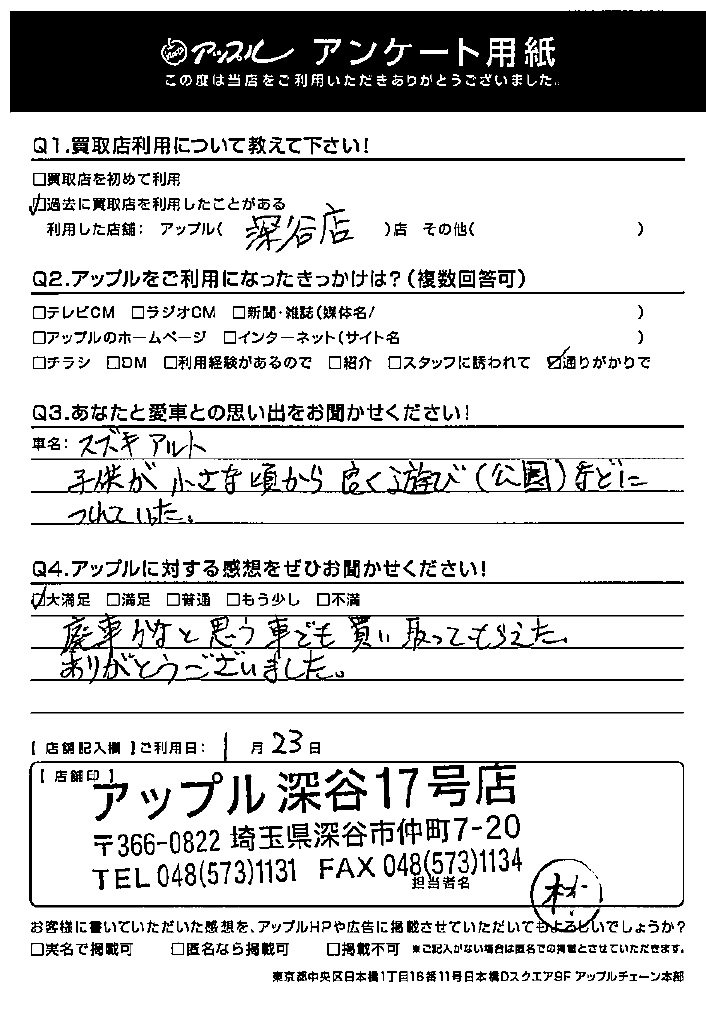 アップル アンケート用紙
この度は当店をご利用いただきありがとうございました。
Q1.買取店利用について教えて下さい!
□買取店を初めて利用
☑過去に買取店を利用したことがある
利用した店舗: アップル( 深谷店 )店 その他( )
Q2.アップルをご利用になったきっかけは?(複数回答可)
□テレビCM □ラジオCM □新聞・雑誌(媒体名/ )
□アップルのホームページ □インターネット(サイト名 )
□チラシ □DM □利用経験があるので □紹介 □スタッフに誘われて ☑通りがかりで
Q3.あなたと愛車との思い出をお聞かせください!
車名: スズキ アルト
子供が 小さな頃から 良く遊び(公園)などに
つれていった。
Q4.アップルに対する感想をぜひお聞かせください!
☑大満足 □満足 □普通 □もう少し □不満
廃車かなと思う車でも買い取ってもらえた。
ありがとうございました。
【 店舗記入欄 】ご利用日: 1 月 23 日
【 店舗印 】
アップル 深谷17号店
〒366-0822 埼玉県深谷市仲町7-20
TEL 048(573)1131 FAX 048(573)1134
担当者名
お客様に書いていただいた感想を、アップルHPや広告に掲載させていただいてもよろしいでしょうか?
□実名で掲載可 □匿名なら掲載可 □掲載不可 ※ご記入がない場合は匿名での掲載とさせていただきます。
東京都中央区日本橋1丁目16番11号日本橋Dスクエア9F アップルチェーン本部